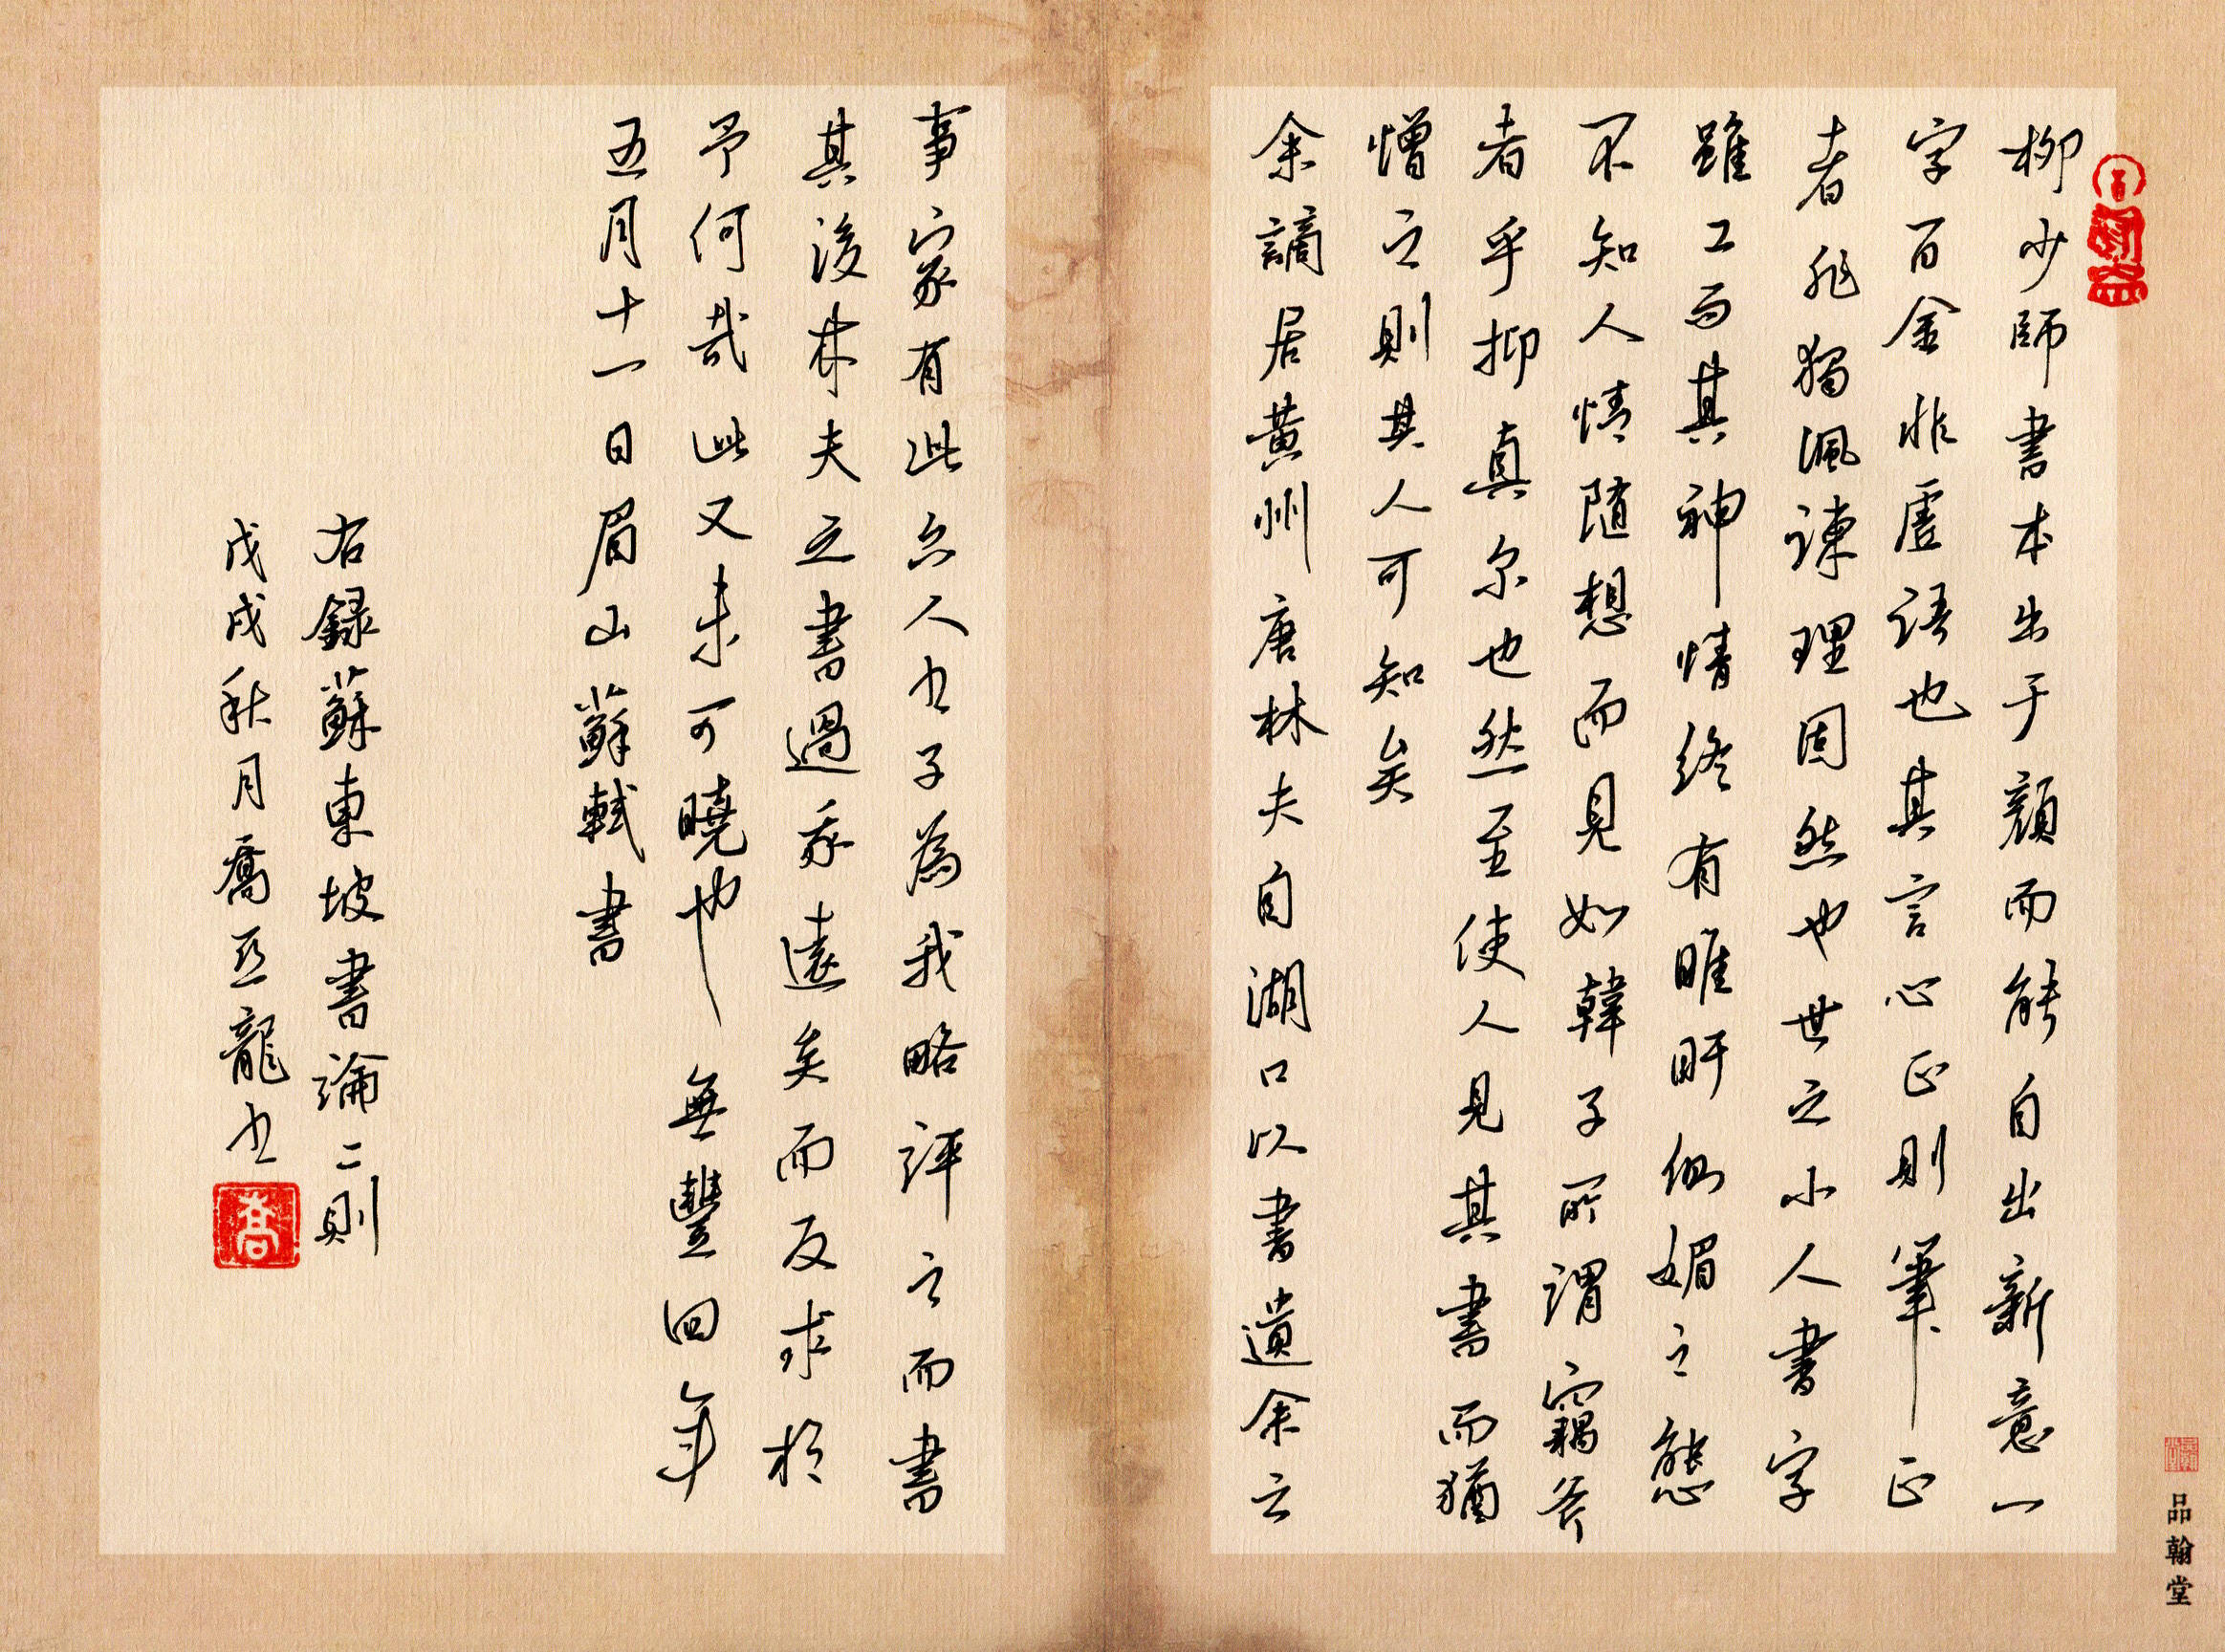 柳少師書本出于顔而能自出新意一
字百金非虛語也其言心正則筆正
者非獨諷諫理固然也世之小人書字
雖工而其神情終有睢盱側媚之態
不知人情隨想而見如韓子所謂竊斧
者乎抑真尔也然至使人見其書而猶
憎之則其人可知矣
余謫居黃州唐林夫自湖口以書遺余云
事家有此六人书子為我略評之而書
其後林夫之書過我遠矣而反求於
予何哉此又未可曉也 無豐四年
五月十一日眉山蘇軾書
右録蘇東坡書論二則
戊戌秋月喬亞龍书
喬
品翰堂